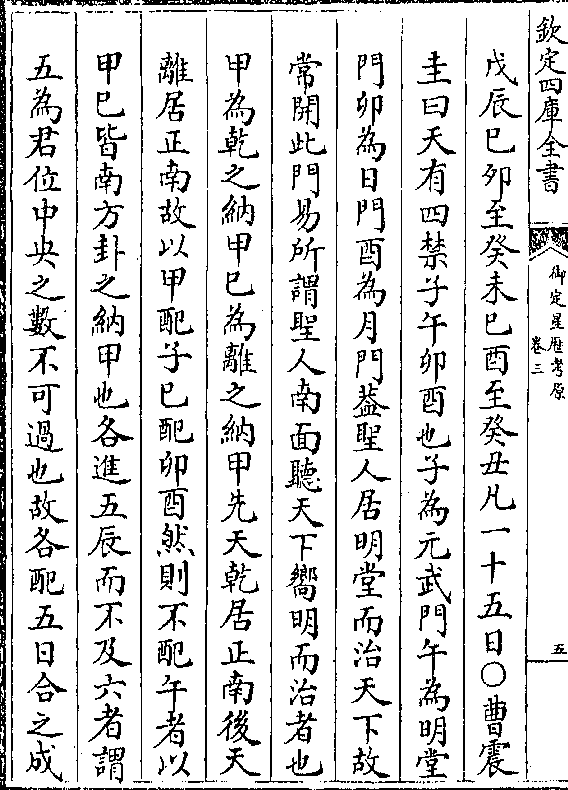 欽定四庫全書
御定星歷考原
卷三
五
戊辰巳夘至癸未巳酉至癸丑凡一十五日〇曹震
圭曰天有四禁子午卯酉也子為元武門午為明堂
門卯為日門酉為月門葢聖人居明堂而治天下故
常開此門易所謂聖人南面聽天下嚮明而治者也
甲為乾之納甲巳為離之納甲先天乾居正南後天
離居正南故以甲配子巳配卯酉然則不配午者以
甲巳皆南方卦之納甲也各進五辰而不及六者謂
五為君位中央之數不可過也故各配五日合之成